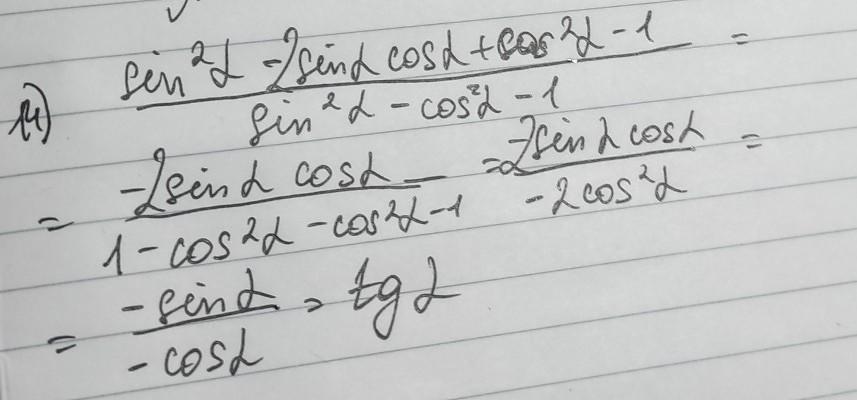 14) (sin²α - 2sinα cosα + cos²α - 1) / (sin²α - cos²α - 1) =
= (-2sinα cosα) / (1 - cos²α - cos²α - 1) = (-2sinα cosα) / (-2cos²α) =
= (-sinα) / (-cosα) = tgα